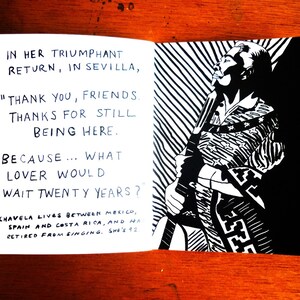 IN HER TRIUMPHANT
RETURN, IN SEVILLA,
"THANK YOU, FRIENDS.
THANKS FOR STILL
BEING HERE.
BECAUSE... WHAT
LOVER WOULD
WAIT TWENTY YEARS?"
CHAVELA LIVES BETWEEN MEXICO,
SPAIN AND COSTA RICA, AND
RETIRED FROM SINGING. SHE'S